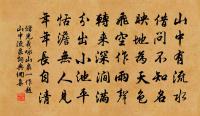 山中有流水
借問不知名
映地為天色
飛空作雨聲
轉來深澗滿
分出小池平
恬澹無人見
年年長自清
儲光羲詠山泉一作題
山中流泉詞典網集